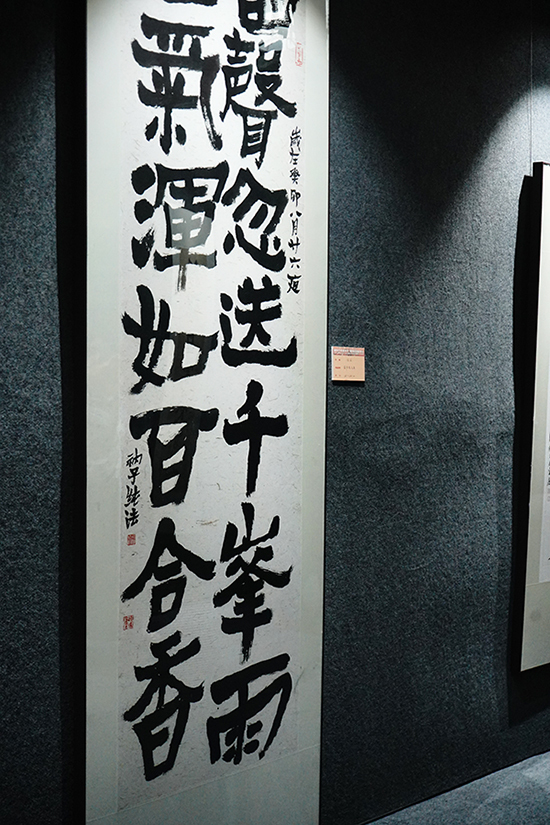 歲在癸卯八月廿六夜
聲忽送千峯雨
氣渾如百合香
衲子法